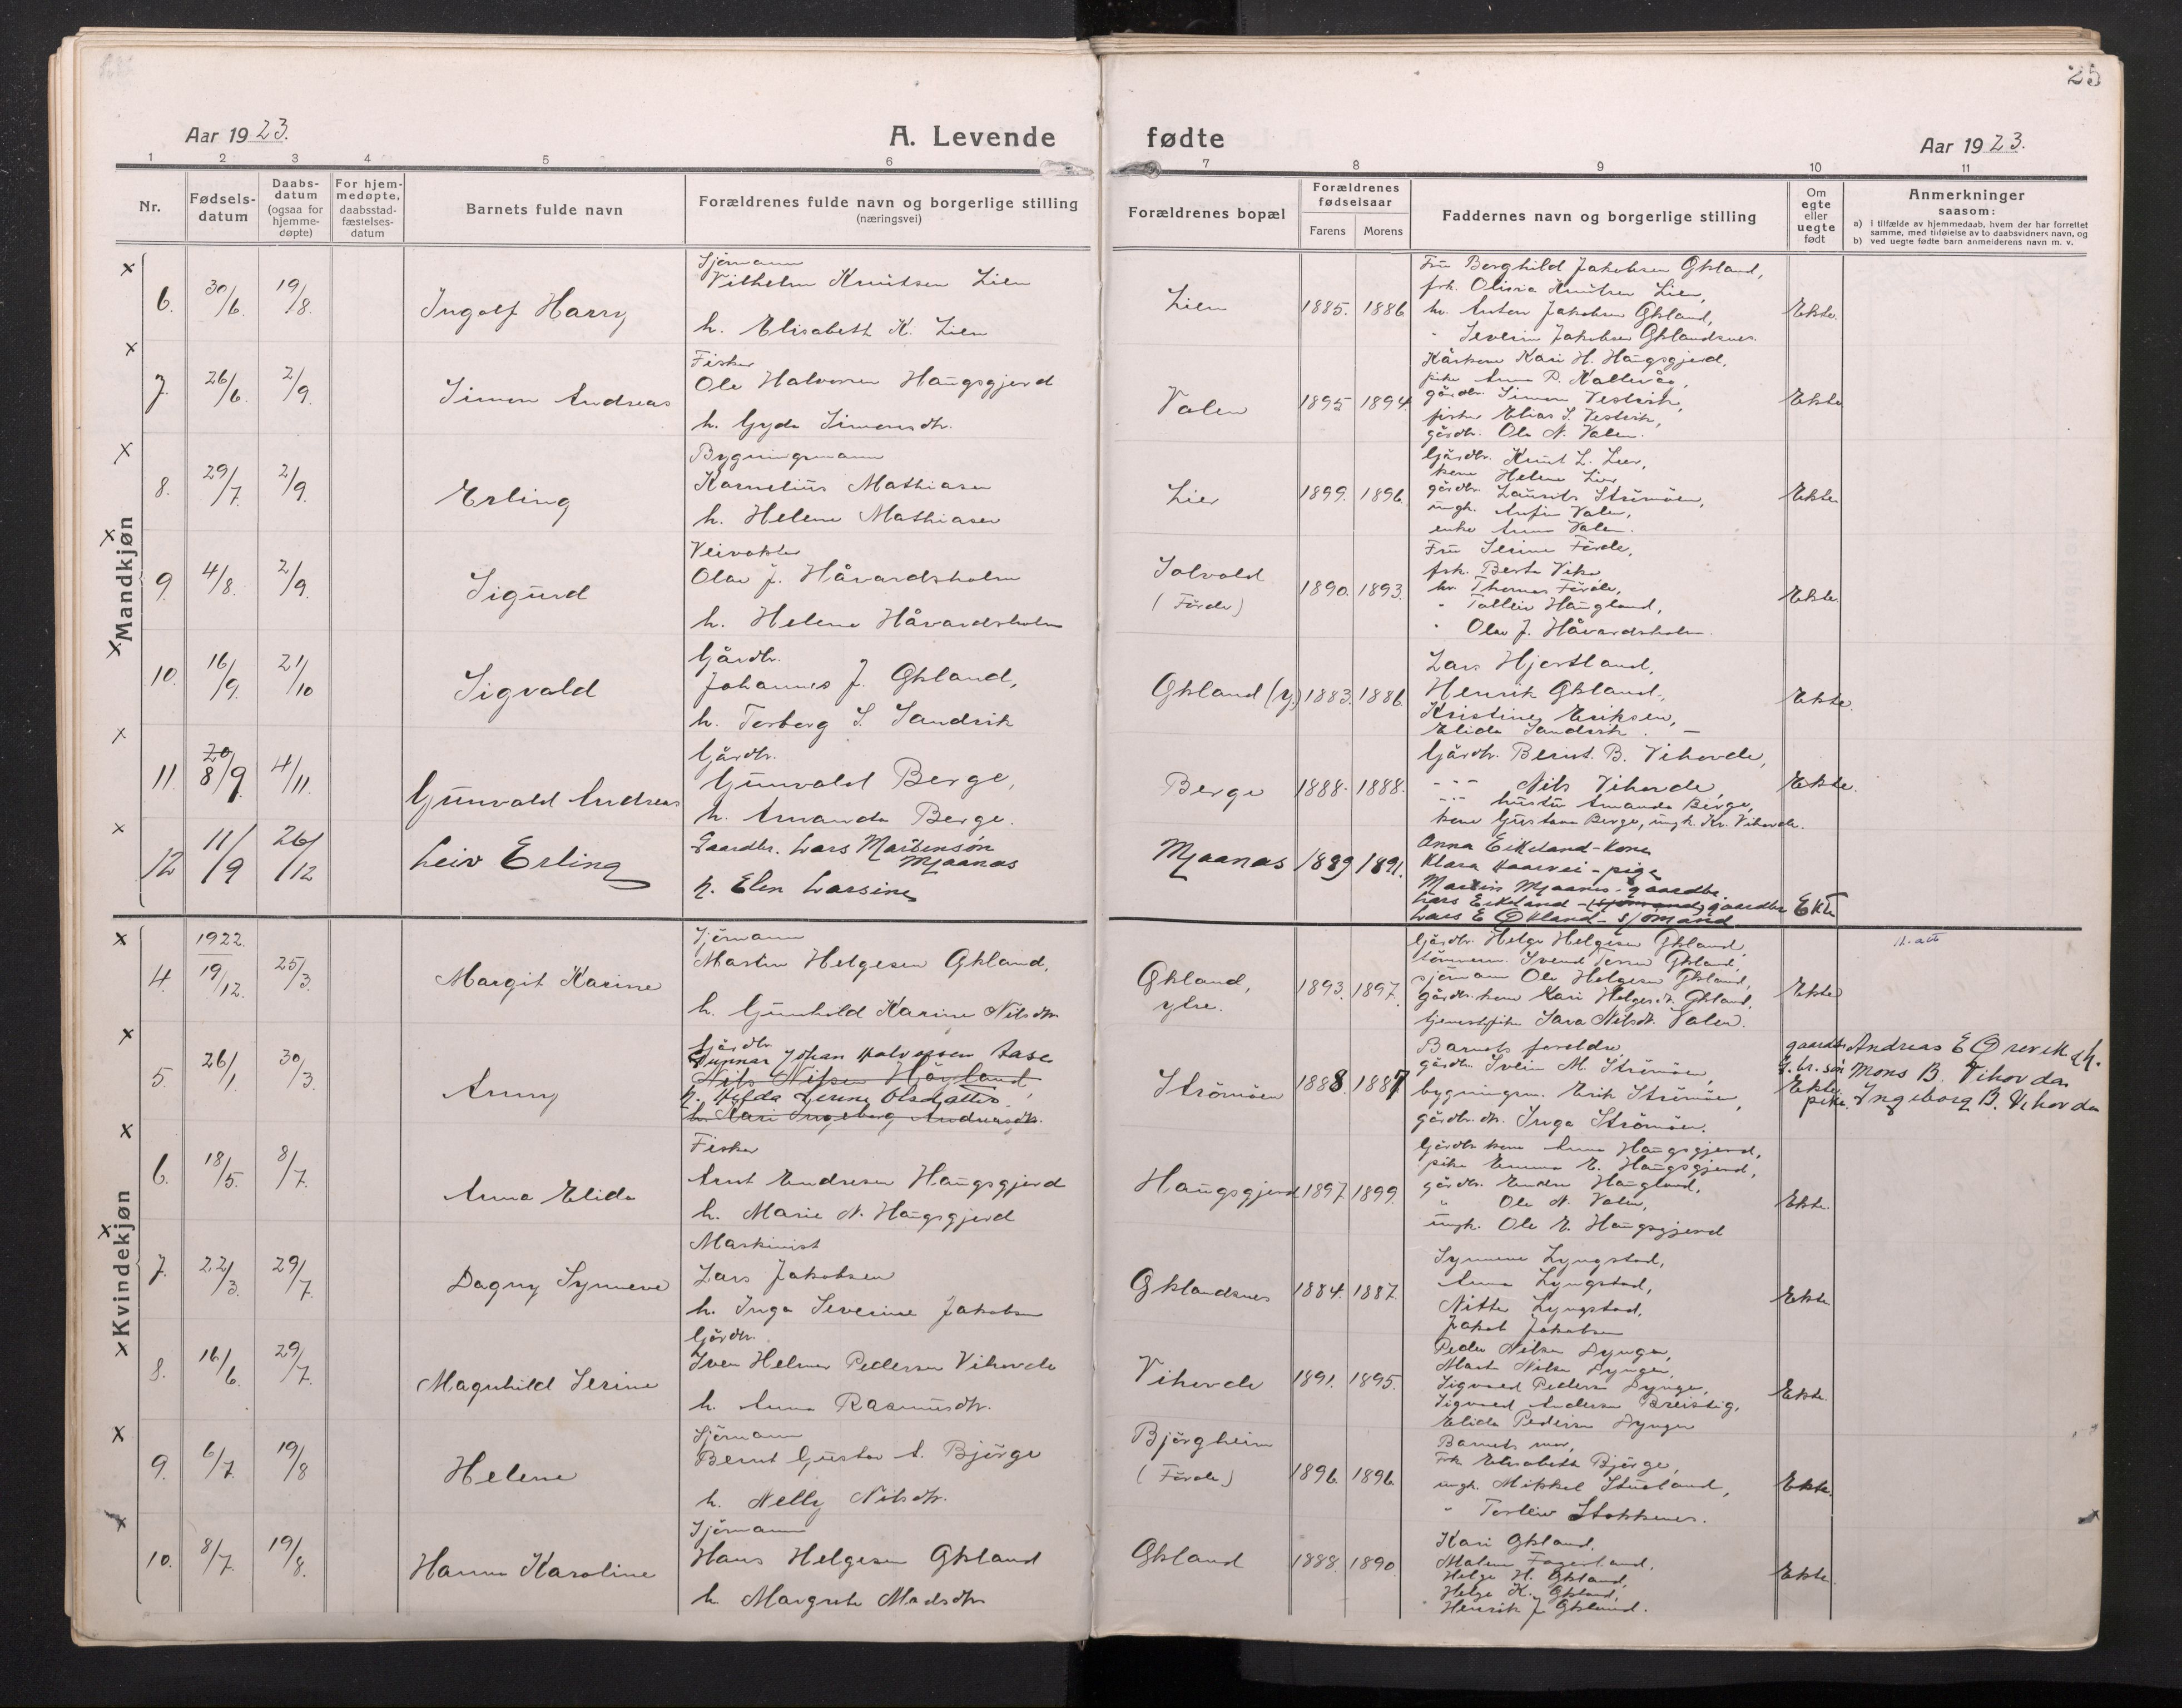 25
Aar 1923.
A. Levende fødte
Aar 1923.
1 2 3 4 5 6 7 8 9 10 11
Nr.
Fødselsdatum
Daabsdatum (ogsaa for hjemmedøpte)
For hjemmedøpte, daabsstadfæstelsesdatum
Barnets fulde navn
Forældrenes fulde navn og borgerlige stilling
(næringsvei)
Forældrenes bopæl
Forældrenes fødselsaar
Farens Morens
Faddernes navn og borgerlige stilling
Om egte eller uegte født
Anmerkninger
saasom:
a) i tilfælde av hjemmedaab, hvem der har forrettet
samme, med tilføielse av to daabsvidners navn, og
b) ved uegte fødte barn anmelderens navn m. v.
Mandkjøn
6. 30/6. 19/8. Ingolf Harry
Sjømann
Vilhelm Knutsen Lien
h. Elisabeth K. Lien
Lien 1885. 1886
Fru Borghild Jakobsen Økland,
frk. Olivia Knutsen Lien,
hr. Anton Jakobsen Økland,
" Severin Jakobsen Øklandsnes.
Ekte.
7. 26/6. 2/9. Simon Andreas
Fisker
Ole Halvorsen Haugsgjerd
h. Gyda Simonsdtr.
Valen 1895 1894
Kårkone Kari H. Haugsgjerd,
pike Anna P. Kallevåg,
gårdbr. Simon Vestvik,
fisker Elias S. Vestvik,
gårdbr. Ole N. Valen.
Ekte
8. 29/7. 2/9. Erling
Bygningsmann
Kornelius Mathiasen
h. Helene Mathiasen
Lier 1899. 1896.
Gårdbr. Knut L. Lier,
kone Helene Lier
gårdbr. Laurits Strömöen,
ungk. Anfin Valen,
enke Anna Valen.
Ekte
9. 4/8. 2/9. Sigurd
Veivokter
Olav J. Håvardsholm
h. Helene Håvardsholm
Solvold
(Förde)
1890. 1893.
Fru Serine Förde,
frk. Berta Vika
hr. Thomas Förde,
" Tolleiv Haugland,
" Olav J. Håvardsholm.
Ekte.
10. 16/9. 21/10 Sigvald
Gårdbr.
Johannes J. Økland,
h. Torborg S. Sandvik
Økland (y.) 1883. 1886.
Lars Hjortland,
Henrik Økland,
Kristine Eriksen,
Elida Sandvik. —
Ekte.
11. 20 8/9. 4/11. Gunvald Andreas
Gårdbr.
Gunvald Berge,
h. Amanda Berge.
Berge 1888. 1888.
Gårdbr. Bernt B. Vihovde,
" Nils Vihovde,
" hustru Amanda Berge,
kone Gustava Berge, ungk. Kr. Vihovde.
Ekte.
12 11/9 26/12 Leiv Erling
Gaardbr. Lars Martenson
Mjaanas
h. Elen Larsine
Mjaanas 1889 1891.
Anna Eikeland - Kone
Klara Haavei - pige
Martin Mjaanes - gaardbr.
Lars Eikeland - (sjömand) gaardbr
Lars E Økland - sjömand
Ekte
Kvindekjøn
1922.
4. 19/12. 25/3. Margit Karine
Sjømann
Martin Helgesen Økland,
h. Gunhild Karine Nilsdtr.
Økland,
ytre.
1893. 1897.
Gårdbr. Helge Helgesen Økland,
sjømann Ole Helgesen Økland,
gårdbr.kone Kari Helgesdt. Økland,
tjenestepike Sara Nilsdt. Valen.
Ekte
5. 26/1. 30/3. Anny
Gårdbr.
Gunnar Johan Halvorsen Aase
Nils Nilsen Höyland
h. Hilda Serine Olsdatter
h. Kari Ingeborg Andreasdtr.
Strömöen 1888. 1887
Barnets foreldre
gårdbr. Svein M. Strömöen,
bygningsm. Erik Strömöen,
gårdbr.dtr. Inga Strömöen.
Ekte
gaardbr Andreas E Ørevik
g.br. søn Mons B. Vihovda
pike. Ingeborg B. Vihovda
6. 18/5. 8/7. Anna Elida
Fisker
Arnt Endresen Haugsgjerd
h. Marie N. Haugsgjerd
Haugsgjerd 1897. 1899.
Gårdbr. kone Anna Haugsgjerd,
pike Emma E. Haugsgjerd,
gårdbr. Endre Haugland,
" Ole N. Valen,
ungk. Ole E. Haugsgjerd
Ekte.
7. 22/3. 29/7. Dagny Synneve
Maskinist
Lars Jakobsen
h. Inga Severine Jakobsen
Øklandsnes 1884. 1887.
Synneve Lyngstad,
Anna Lyngstad,
Nitter Lyngstad,
Jakob Jakobsen
Ekte.
8. 16/6. 29/7. Magnhild Serine
Gårdbr.
Sven Helmer Pedersen Vihovde
h. Anna Rasmusdtr.
Vihovde 1891. 1895.
Peder Nilsen Dynger,
Marta Nilsen Dynger,
Sigvard Pedersen Dynge,
Sigvard Andersen Breivig,
Elida Pedersen Dynger
Ekte.
9. 6/7. 19/8 Helene
Sjømann
Bernt Gustav A. Björge
h. Nelly Nilsdtr.
Björgheim
(Förde)
1896. 1896.
Barnets mor,
Frk Elisabeth Björge,
ungk. Mikkel Stueland,
" Torleiv Stokkenes.
Ekte.
10. 8/7. 19/8. Hanna Karoline
Sjømann
Hans Helgesen Økland
h. Margrete Madsdtr
Økland 1888. 1890.
Kari Økland,
Malene Fagerland,
Helge H. Økland,
Helge K. Økland,
Henrik J Økland.
Ekte.